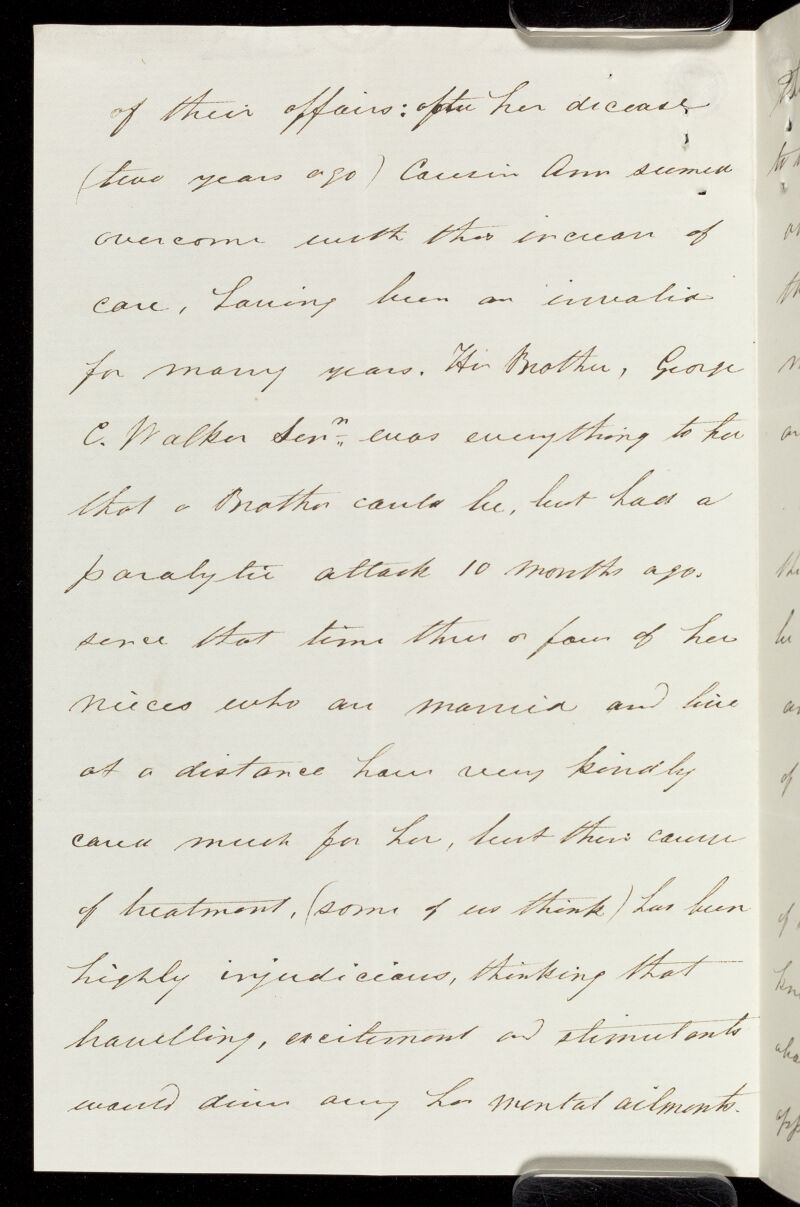 of their affairs: after her dicease
(two years ago) Cousin Ann seemed
overcome with this increase of
care, having been an invalid
for many years. Her Brother, George
C. Walker Senr. was everything to her
that a Brother could be, but had a
paralytic attack 10 months ago.
since that time three or four of her
nieces who are married and live
at a distance have very kindly
cared much for her, but their course
of treatment, (some of us think) has been
highly injudicious, thinking that
travelling, excitement and stimulants
would drive away her mental ailments.